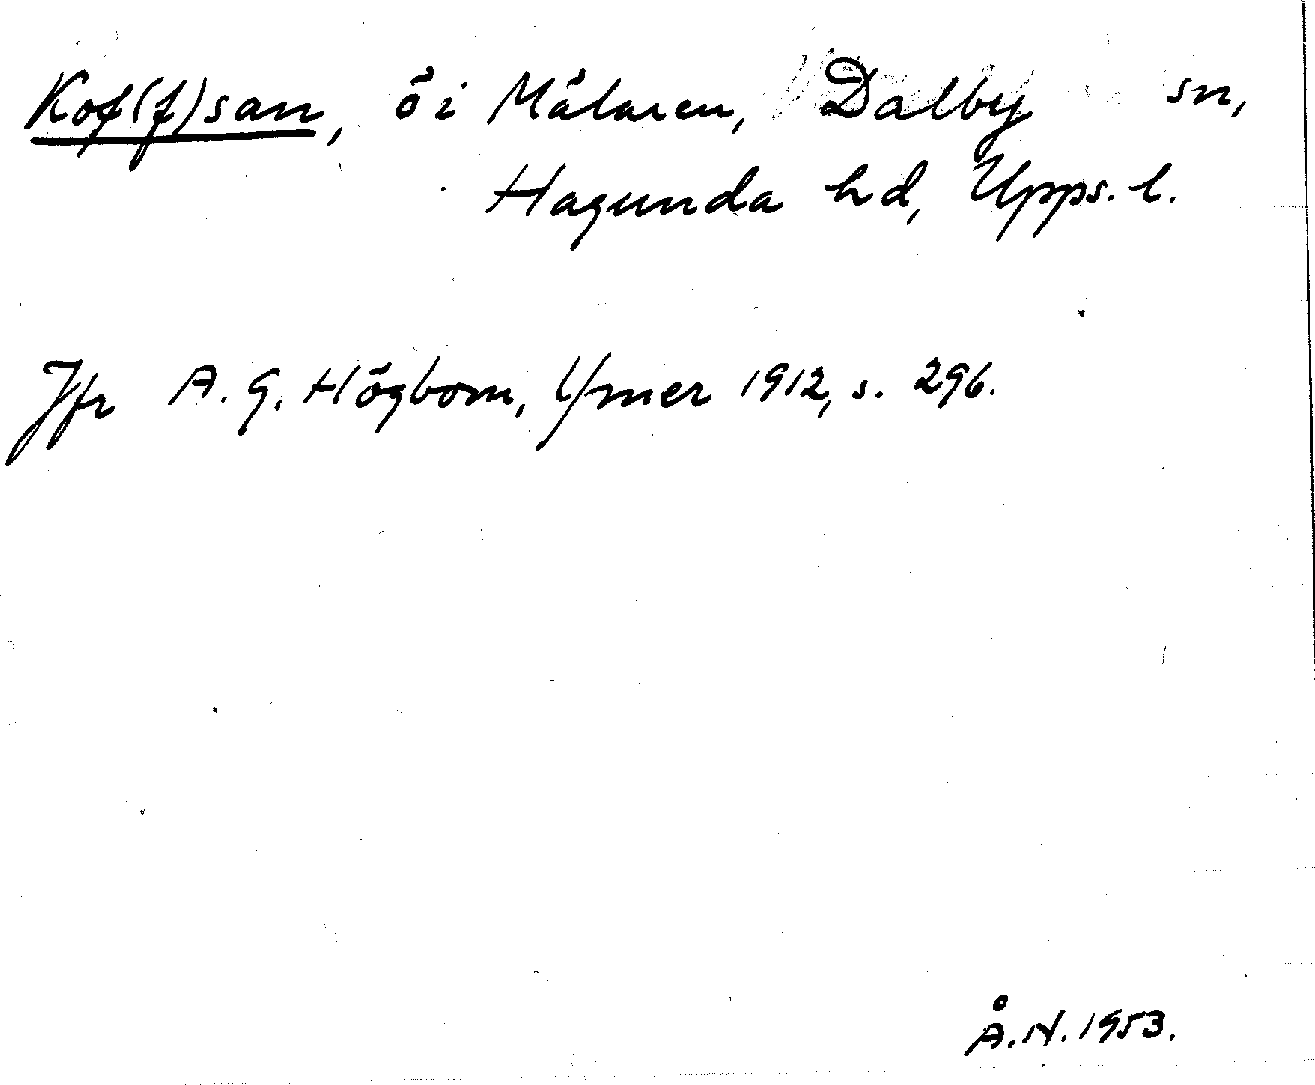 Kof(f)san, ö i Mälaren, Dalby sn,
Hagunda hd, Upps. l.
Jfr A. G. Högbom, Ymer 1912, s. 296.
Å. N. 1953.